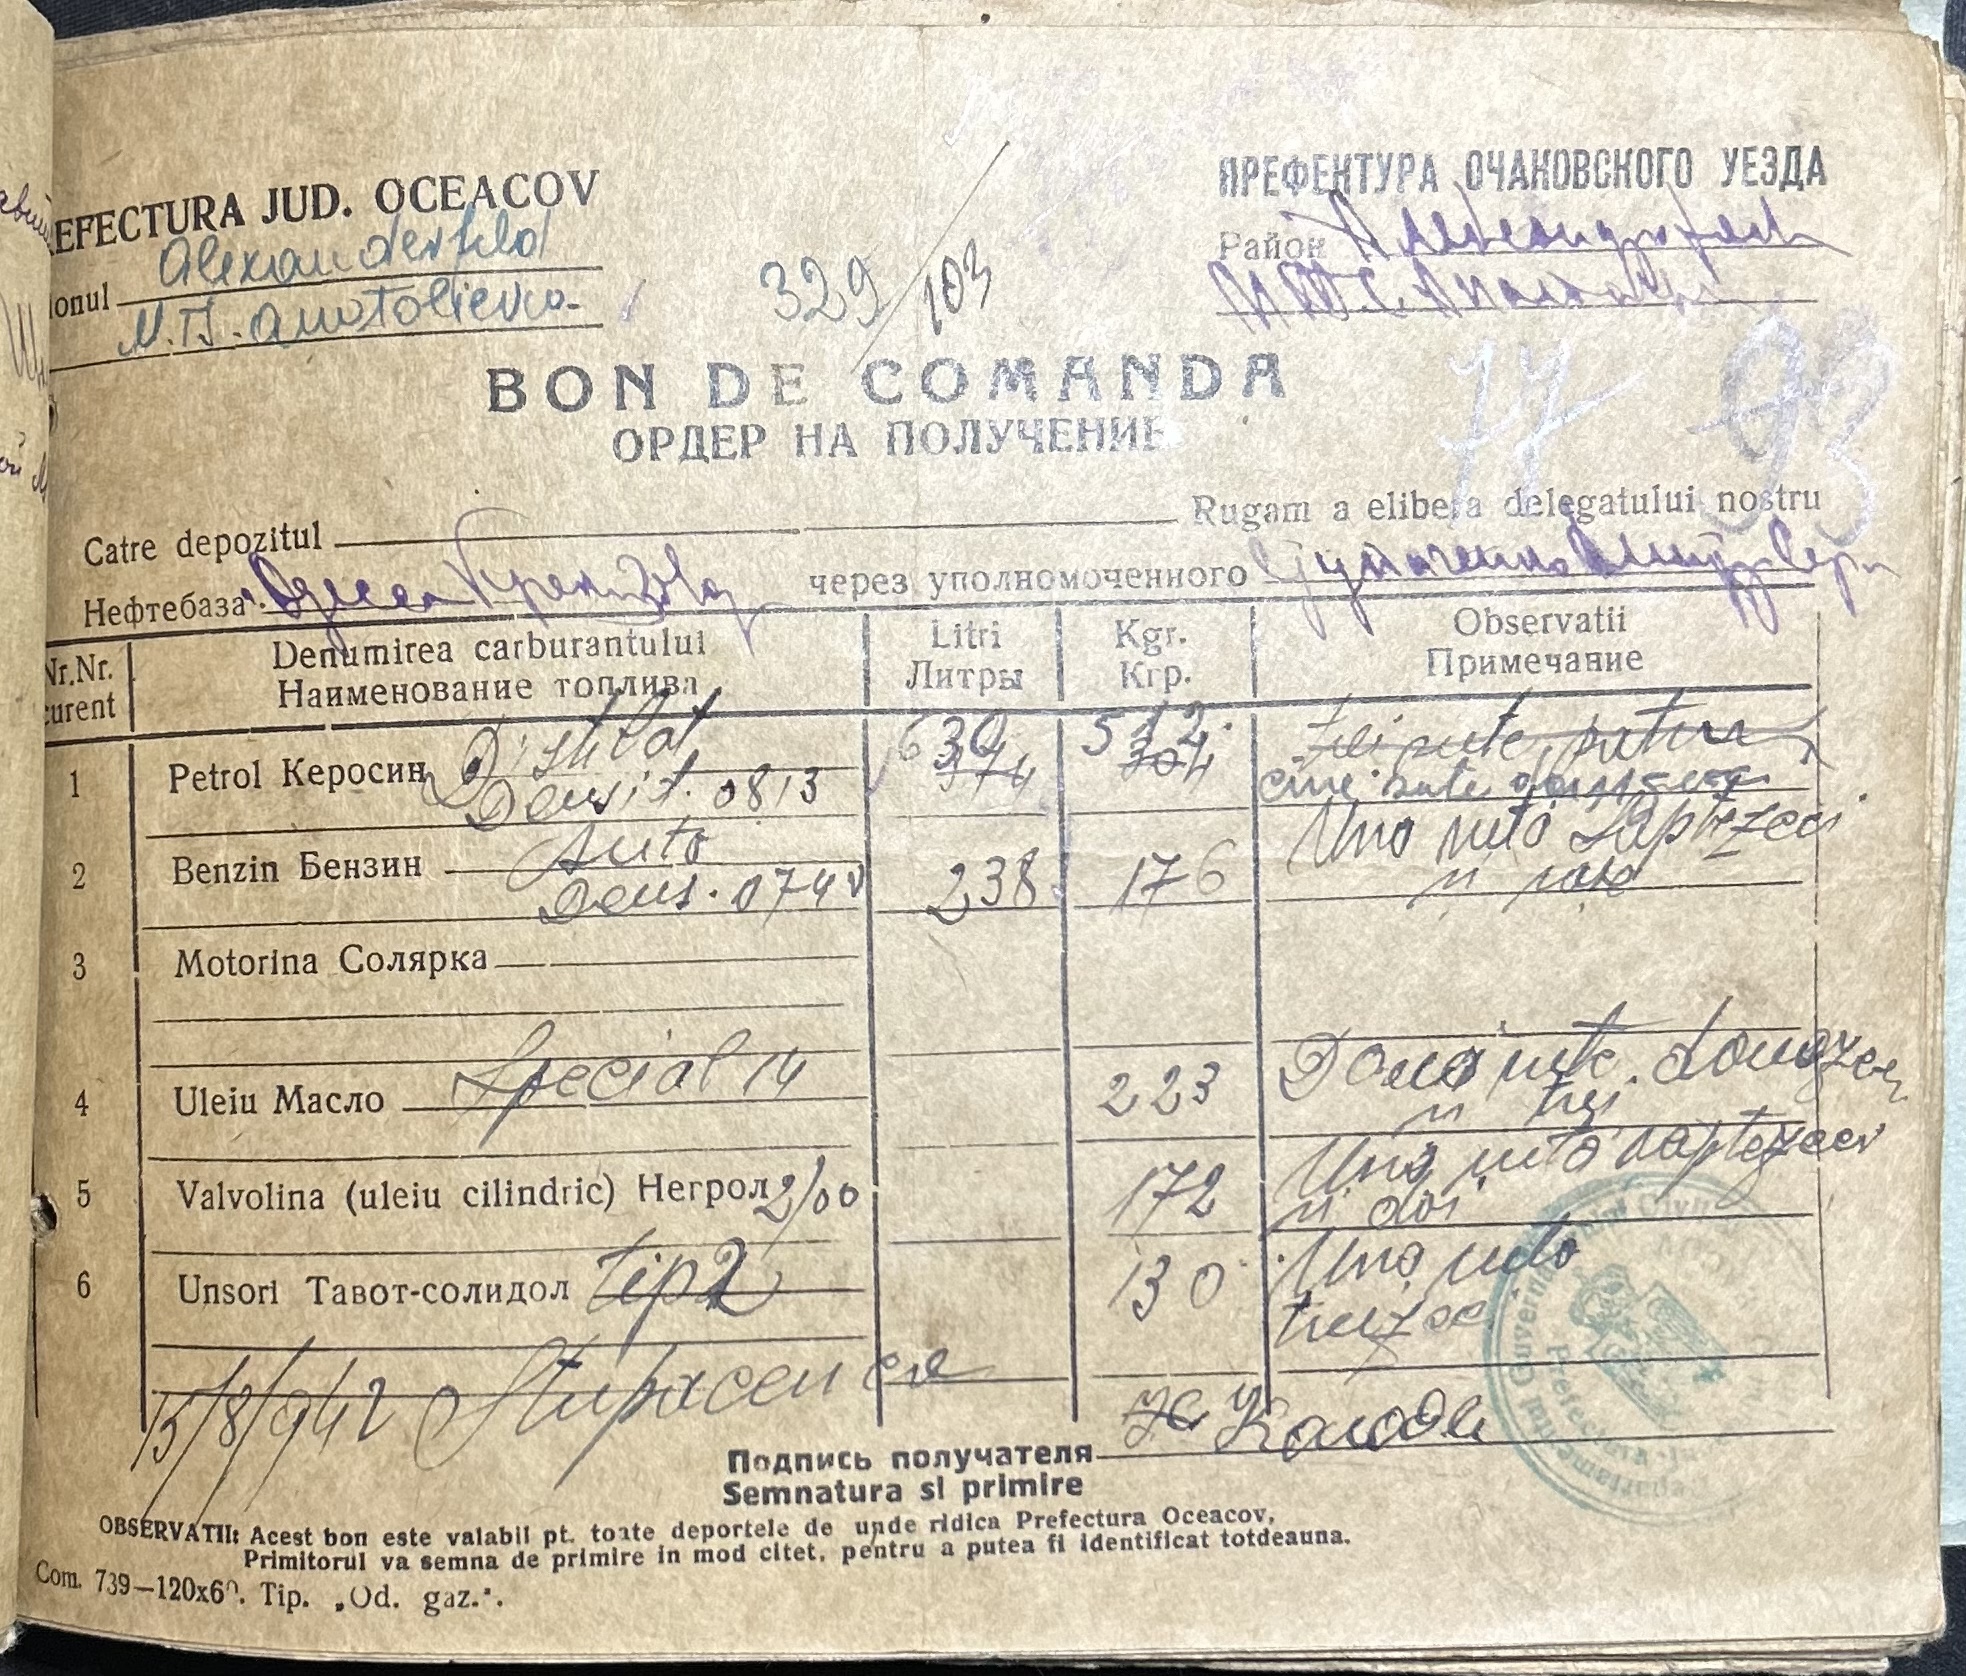 EFECTURA JUD. OCEACOV
ПРЕФЕКТУРА ОЧАКОВСКОГО УЕЗДА
ionul Alexanderfeld
M.T. Anatolievca
Район Александерфельд
МТС
329/103
BON DE COMANDA
ОРДЕР НА ПОЛУЧЕНИЕ
77 93
Catre depozitul Rugam a elibera delegatului nostru
Нефтебаза Одесса через уполномоченного
Nr.Nr. curent Denumirea carburantului Litri Kgr. Observatii
Наименование топлива Литры Кгр. Примечание
1 Petrol Керосин Distilat Densit. 0813 630 374 512 304 trei sute patru cinci sute
2 Benzin Бензин Auto Dens. 0740 238 176 Una suta șaptezeci și șase
3 Motorina Солярка
4 Uleiu Масло Special 14 223 Doua sute douazeci și trei
5 Valvolina (uleiu cilindric) Негрол 2/00 172 Una suta șaptezeci și doi
6 Unsori Тавот-солидол tip 2 130 Una suta treizeci
15/8/942 Stupacenco
Подпись получателя
Semnatura si primire
OBSERVATII: Acest bon este valabil pt. toate deportele de unde ridica Prefectura Oceacov,
Primitorul va semna de primire in mod citet, pentru a putea fi identificat totdeauna.
Com. 739—120x60. Tip. „Od. gaz.".